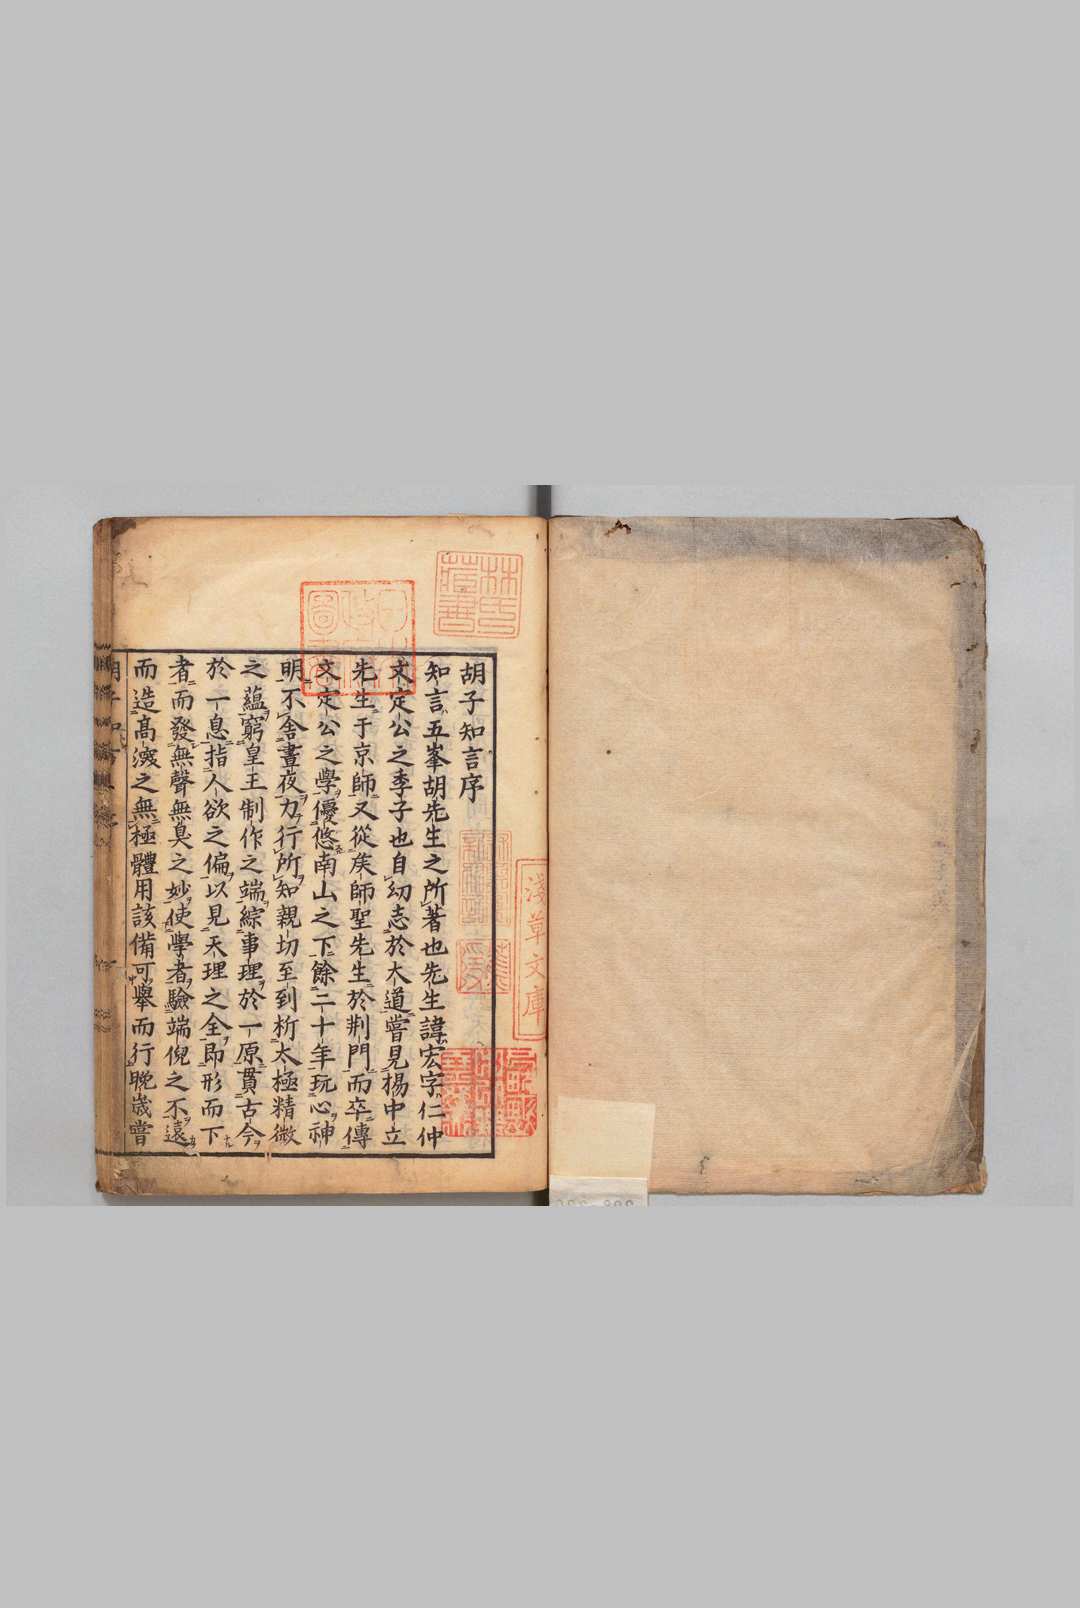 胡子知言序
知言五峯胡先生之所著也先生諱宏字仁仲
文定公之季子也自幼志於大道嘗見楊中立
先生于京師又從矦師聖先生於荆門而卒傳
文定公之學優悠南山之下餘二十年玩心神
明不舍晝夜力行所知親切至到析太極精微
之蘊窮皇王制作之端綜事理於一原貫古今
於一息指人欲之偏以見天理之全即形而下
者而發無聲無臭之妙使學者驗端倪之不遠
而造高深之無極體用該備可舉而行晚歲嘗
林氏藏書
淺草文庫